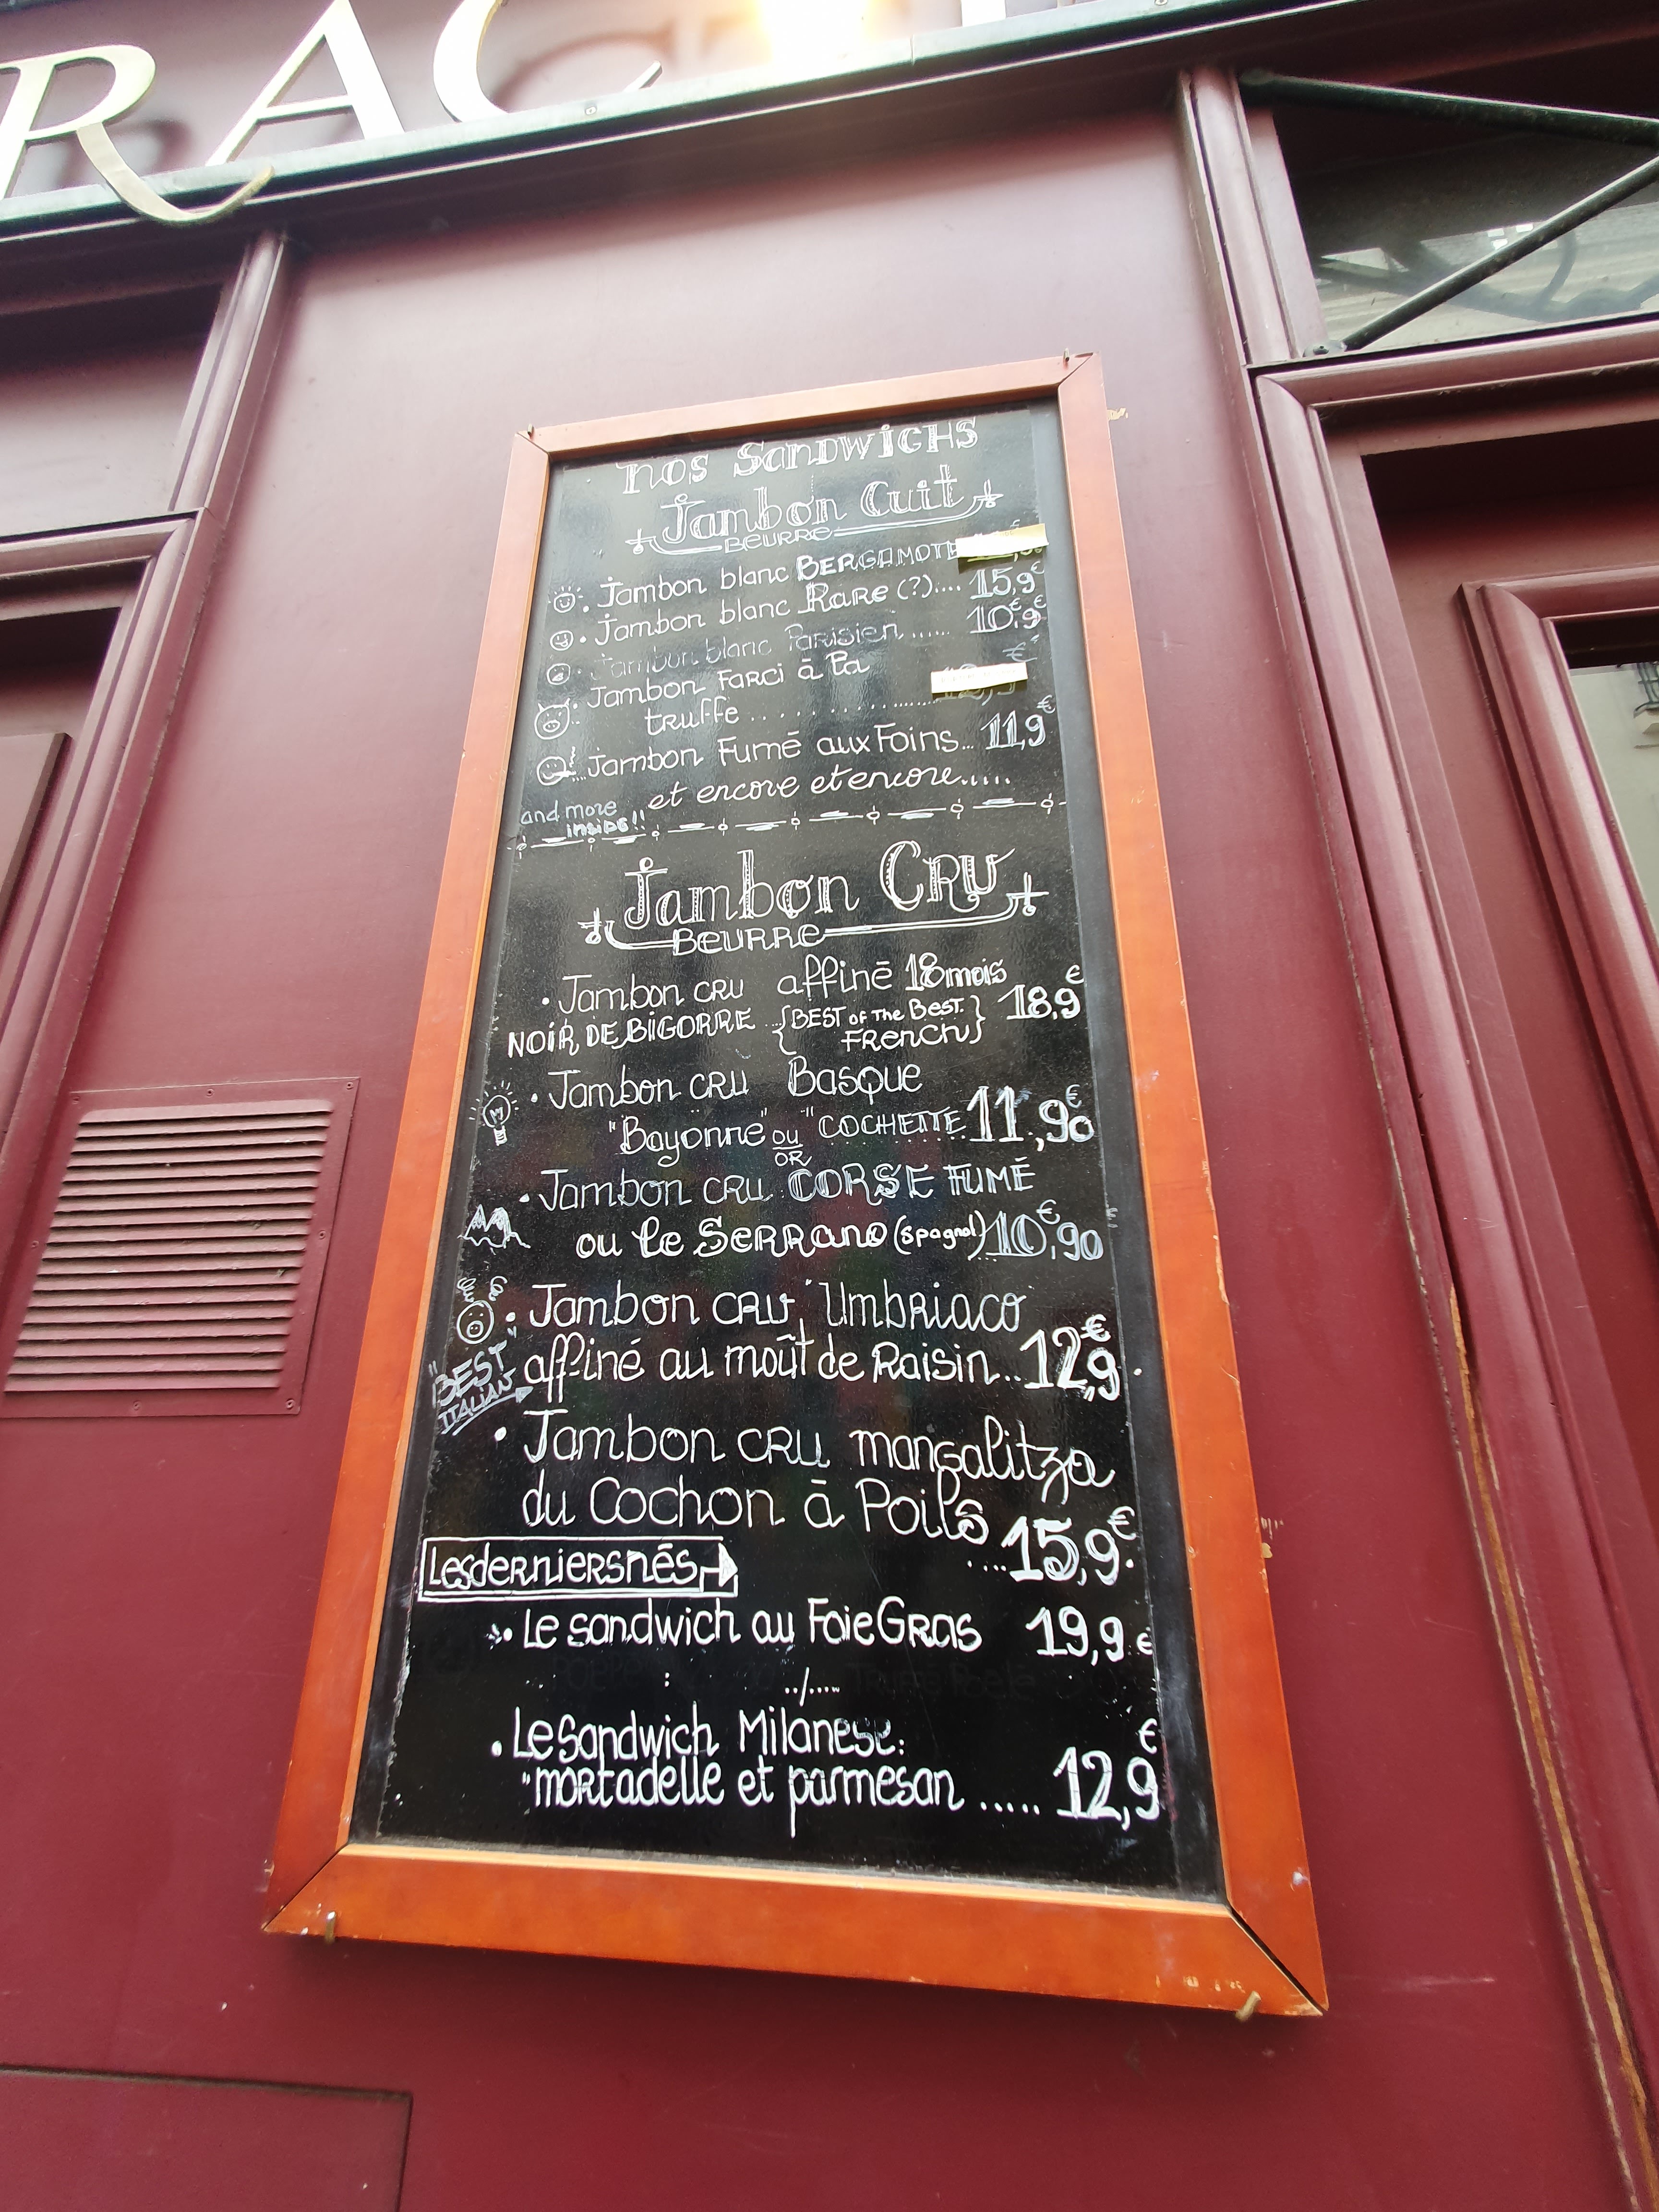 RAC
nos SANDWICHS
Jambon Cuit
BEURRE
Jambon blanc BERGAMOTE
Jambon blanc RARE (?).... 15,9€
Jambon blanc Parisien ...... 10,9€
Jambon Farci à la
truffe .... ..........
€
Jambon Fumé aux Foins... 11,9€
et encore et encore.....
and more
inside!!
Jambon CRU
BEURRE
• Jambon CRU affiné 18 mois
NOIR DE BIGORRE {BEST of The Best. French} 18,9€
• Jambon CRU Basque
"Bayonne" ou "COCHETTE 11,90€
OR
• Jambon CRU CORSE FUMÉ
ou le SERRANO (spagnol) 10,90€
• Jambon CRU Umbriaco
affiné au moût de Raisin.. 12,9€
"BEST"
ITALIAN
• Jambon CRU mangalitza
du Cochon à Poils
...15,9€
Les derniers nés
• Le sandwich au Foie Gras 19,9€
../....
• Le Sandwich Milanese:
"mortadelle et parmesan ..... 12,9€